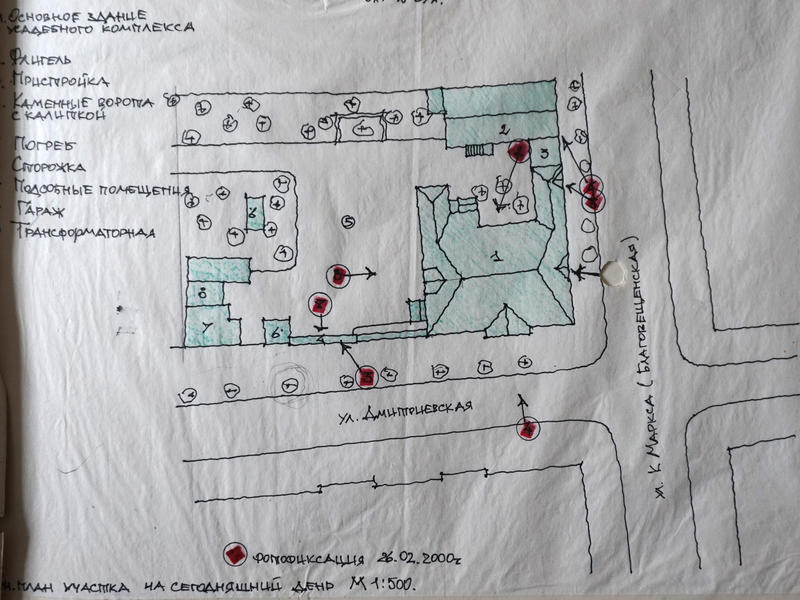 1. Основное здание
усадебного комплекса
Флигель
Пристройка
Каменные ворота
с калиткой
Погреб
Сторожка
Подсобные помещения
Гараж
Трансформаторная
2
3
1
5
8
8
7
6
4
ул. Дмитриевская
ул. К Маркса (Благовещенская)
Фотофиксация 26.02.2000г
план участка на сегодняшний день М 1:500.